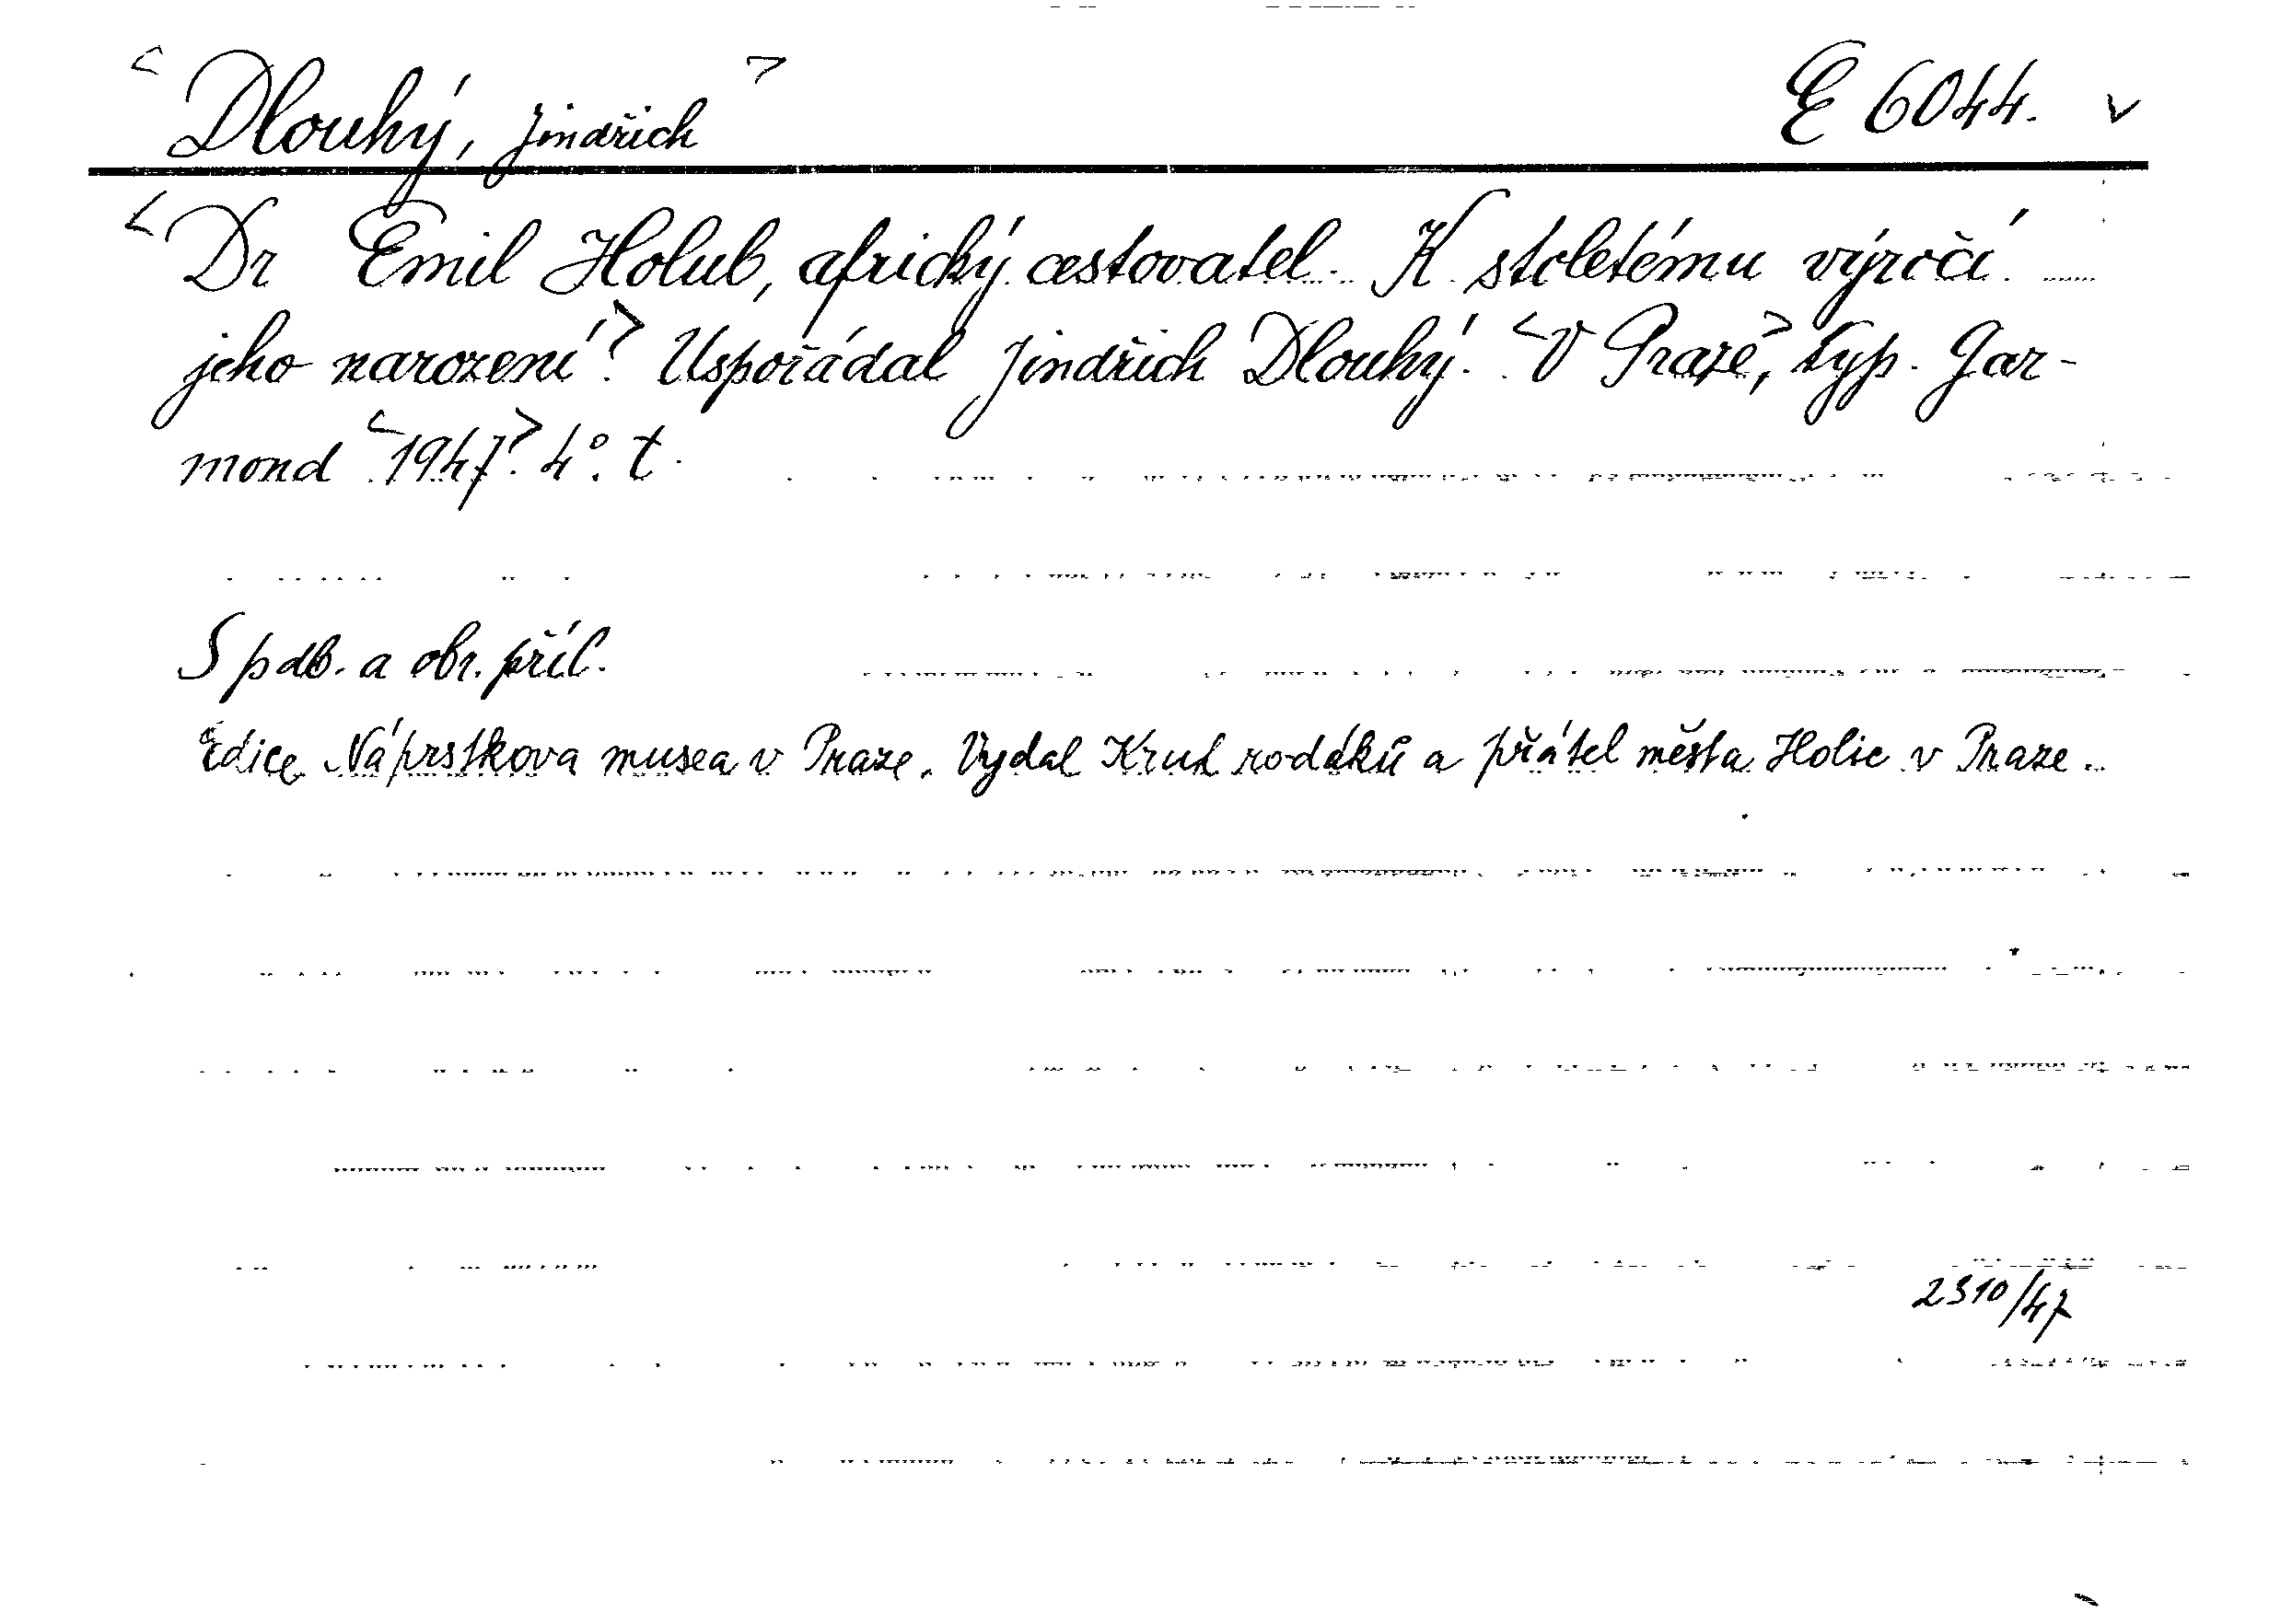 <Dlouhý, Jindřich> E 6044. v
<Dr Emil Holub, africký cestovatel. K stoletému výročí
jeho narození>. Uspořádal Jindřich Dlouhý. <V Praze>, typ. Gar-
mond <1947>. 4°. t.
S pdb. a obr. příl.
Edice Náprstkova musea v Praze. Vydal Kruh rodáků a přátel města Holic v Praze.
2310/47